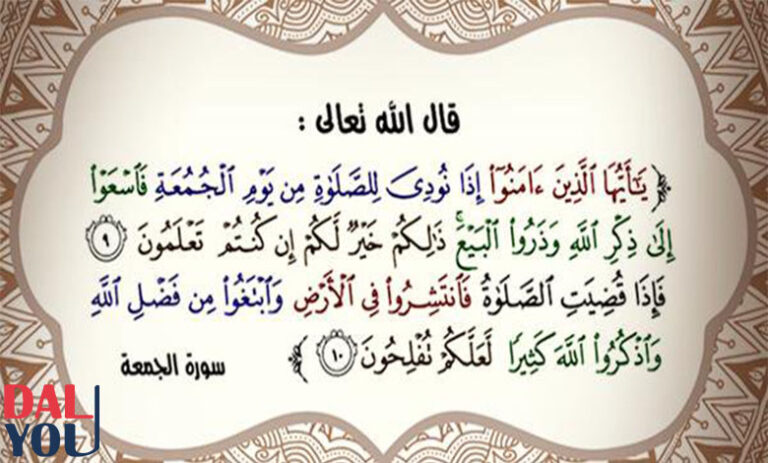 قال الله تعالى :
﴿ يَٰٓأَيُّهَا ٱلَّذِينَ ءَامَنُوٓا۟ إِذَا نُودِىَ لِلصَّلَوٰةِ مِن يَوْمِ ٱلْجُمُعَةِ فَٱسْعَوْا۟
إِلَىٰ ذِكْرِ ٱللَّهِ وَذَرُوا۟ ٱلْبَيْعَ ۚ ذَٰلِكُمْ خَيْرٌ لَّكُمْ إِن كُنتُمْ تَعْلَمُونَ ٩
فَإِذَا قُضِيَتِ ٱلصَّلَوٰةُ فَٱنتَشِرُوا۟ فِى ٱلْأَرْضِ وَٱبْتَغُوا۟ مِن فَضْلِ ٱللَّهِ
وَٱذْكُرُوا۟ ٱللَّهَ كَثِيرًا لَّعَلَّكُمْ تُفْلِحُونَ ١٠ ﴾
سورة الجمعة
DAL
YOU